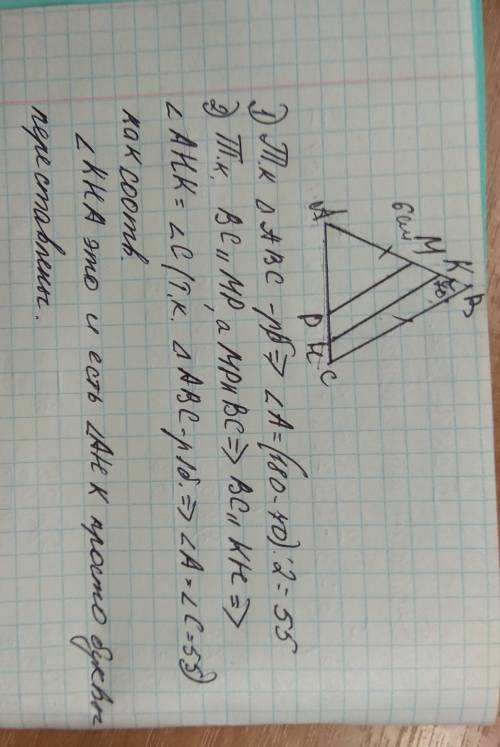 A
6 см
M
K
B
70°
P
H
C
1) Т.к △ABC - р/б => ∠A = (180-70):2 = 55
2) Т.к. BC || MP, а MP || BC => BC || KH =>
∠AHK = ∠C (Т.к. △ABC - р/б. => ∠A = ∠C = 55)
как соотв.
∠KHA это и есть ∠AHK просто буквы
переставлены.